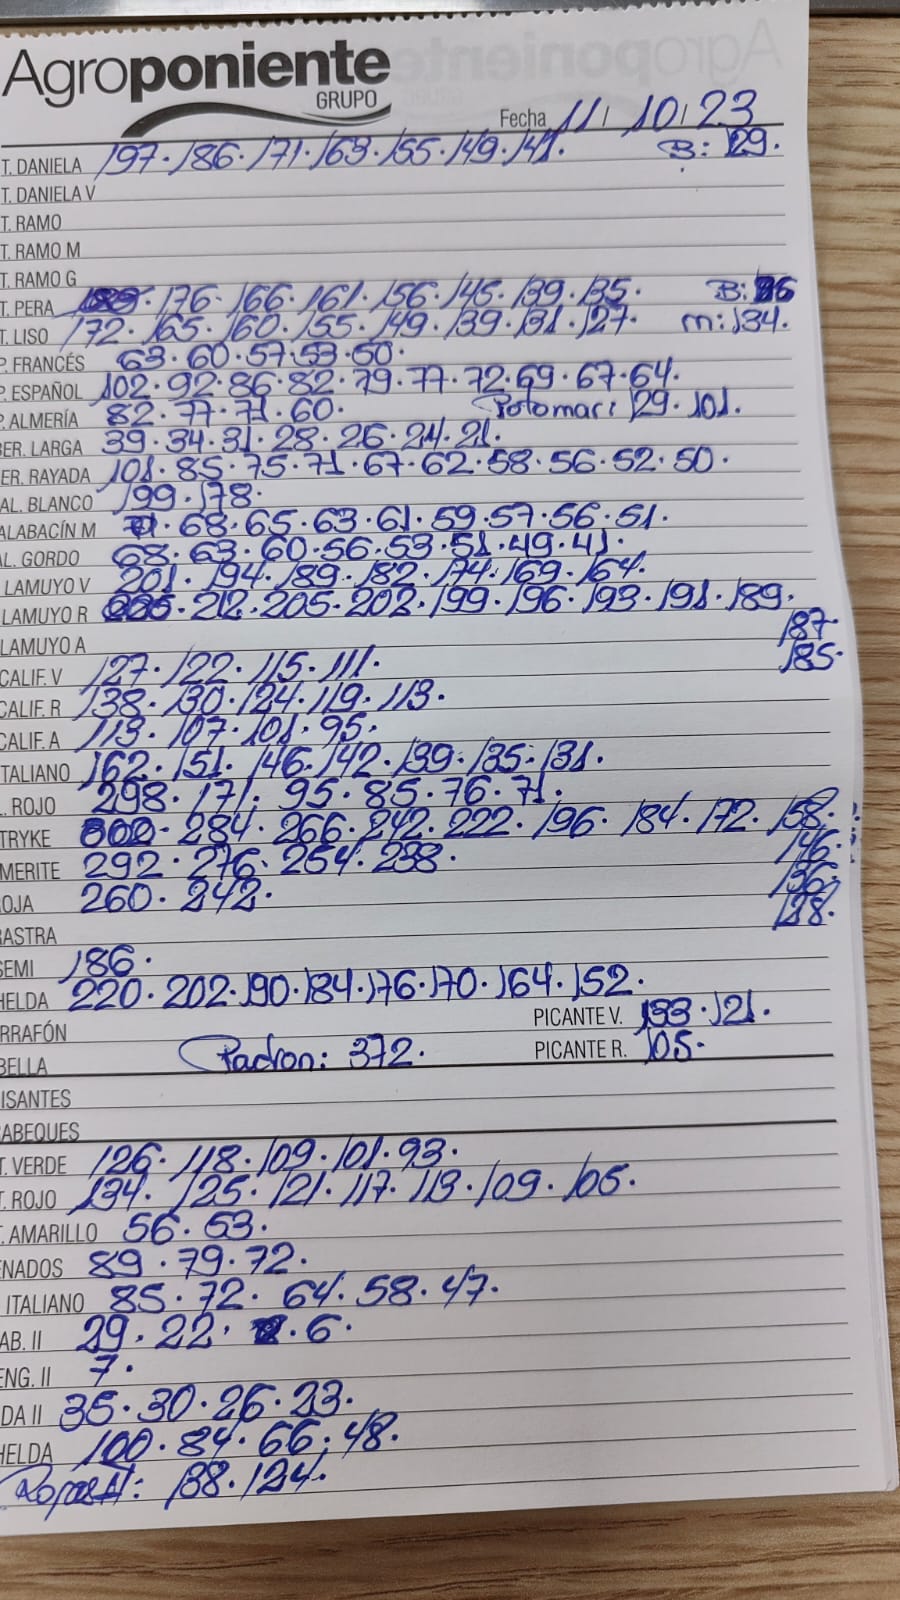 Agroponiente
GRUPO
Fecha 11 / 10 / 23
T. DANIELA 197 · 186 · 171 · 163 · 155 · 149 · 141. B: 129.
T. DANIELA V
T. RAMO
T. RAMO M
T. RAMO G
T. PERA 176 · 166 · 161 · 156 · 145 · 139 · 135. B:
T. LISO 172 · 165 · 160 · 155 · 149 · 139 · 131 · 127. m: 134.
P. FRANCÉS 63 · 60 · 57 · 53 · 50.
P. ESPAÑOL 102 · 92 · 86 · 82 · 79 · 77 · 72 · 69 · 67 · 64.
P. ALMERÍA 82 · 77 · 71 · 60. Potomar: 129 · 101.
BER. LARGA 39 · 34 · 31 · 28 · 26 · 24 · 21.
ER. RAYADA 101 · 85 · 75 · 71 · 67 · 62 · 58 · 56 · 52 · 50.
AL. BLANCO 199 · 178.
ALABACÍN M 71 · 68 · 65 · 63 · 61 · 59 · 57 · 56 · 51.
AL. GORDO 68 · 63 · 60 · 56 · 53 · 51 · 49 · 41.
LAMUYO V 201 · 194 · 189 · 182 · 174 · 169 · 164.
LAMUYO R 212 · 205 · 202 · 199 · 196 · 193 · 191 · 189.
187.
LAMUYO A 185.
CALIF. V 127 · 122 · 115 · 111.
CALIF. R 138 · 130 · 124 · 119 · 113.
CALIF. A 113 · 107 · 101 · 95.
ITALIANO 162 · 151 · 146 · 142 · 139 · 135 · 131.
. ROJO 298 · 171 · 95 · 85 · 76 · 71.
TRYKE 300 · 284 · 266 · 242 · 222 · 196 · 184 · 172 · 158.
146.
MERITE 292 · 276 · 254 · 238.
136.
OJA 260 · 242.
128.
RASTRA
SEMI 186.
HELDA 220 · 202 · 190 · 184 · 176 · 170 · 164 · 152.
RRAFÓN PICANTE V. 133 · 121.
BELLA Padron: 372. PICANTE R. 105.
ISANTES
ABEQUES
T. VERDE 126 · 118 · 109 · 101 · 93.
T. ROJO 134 · 125 · 121 · 117 · 113 · 109 · 105.
. AMARILLO 56 · 53.
ENADOS 89 · 79 · 72.
ITALIANO 85 · 72 · 64 · 58 · 47.
AB. II 29 · 22 · 6.
ENG. II 7.
DA II 35 · 30 · 26 · 23.
HELDA 100 · 84 · 66 · 48.
138 · 124.